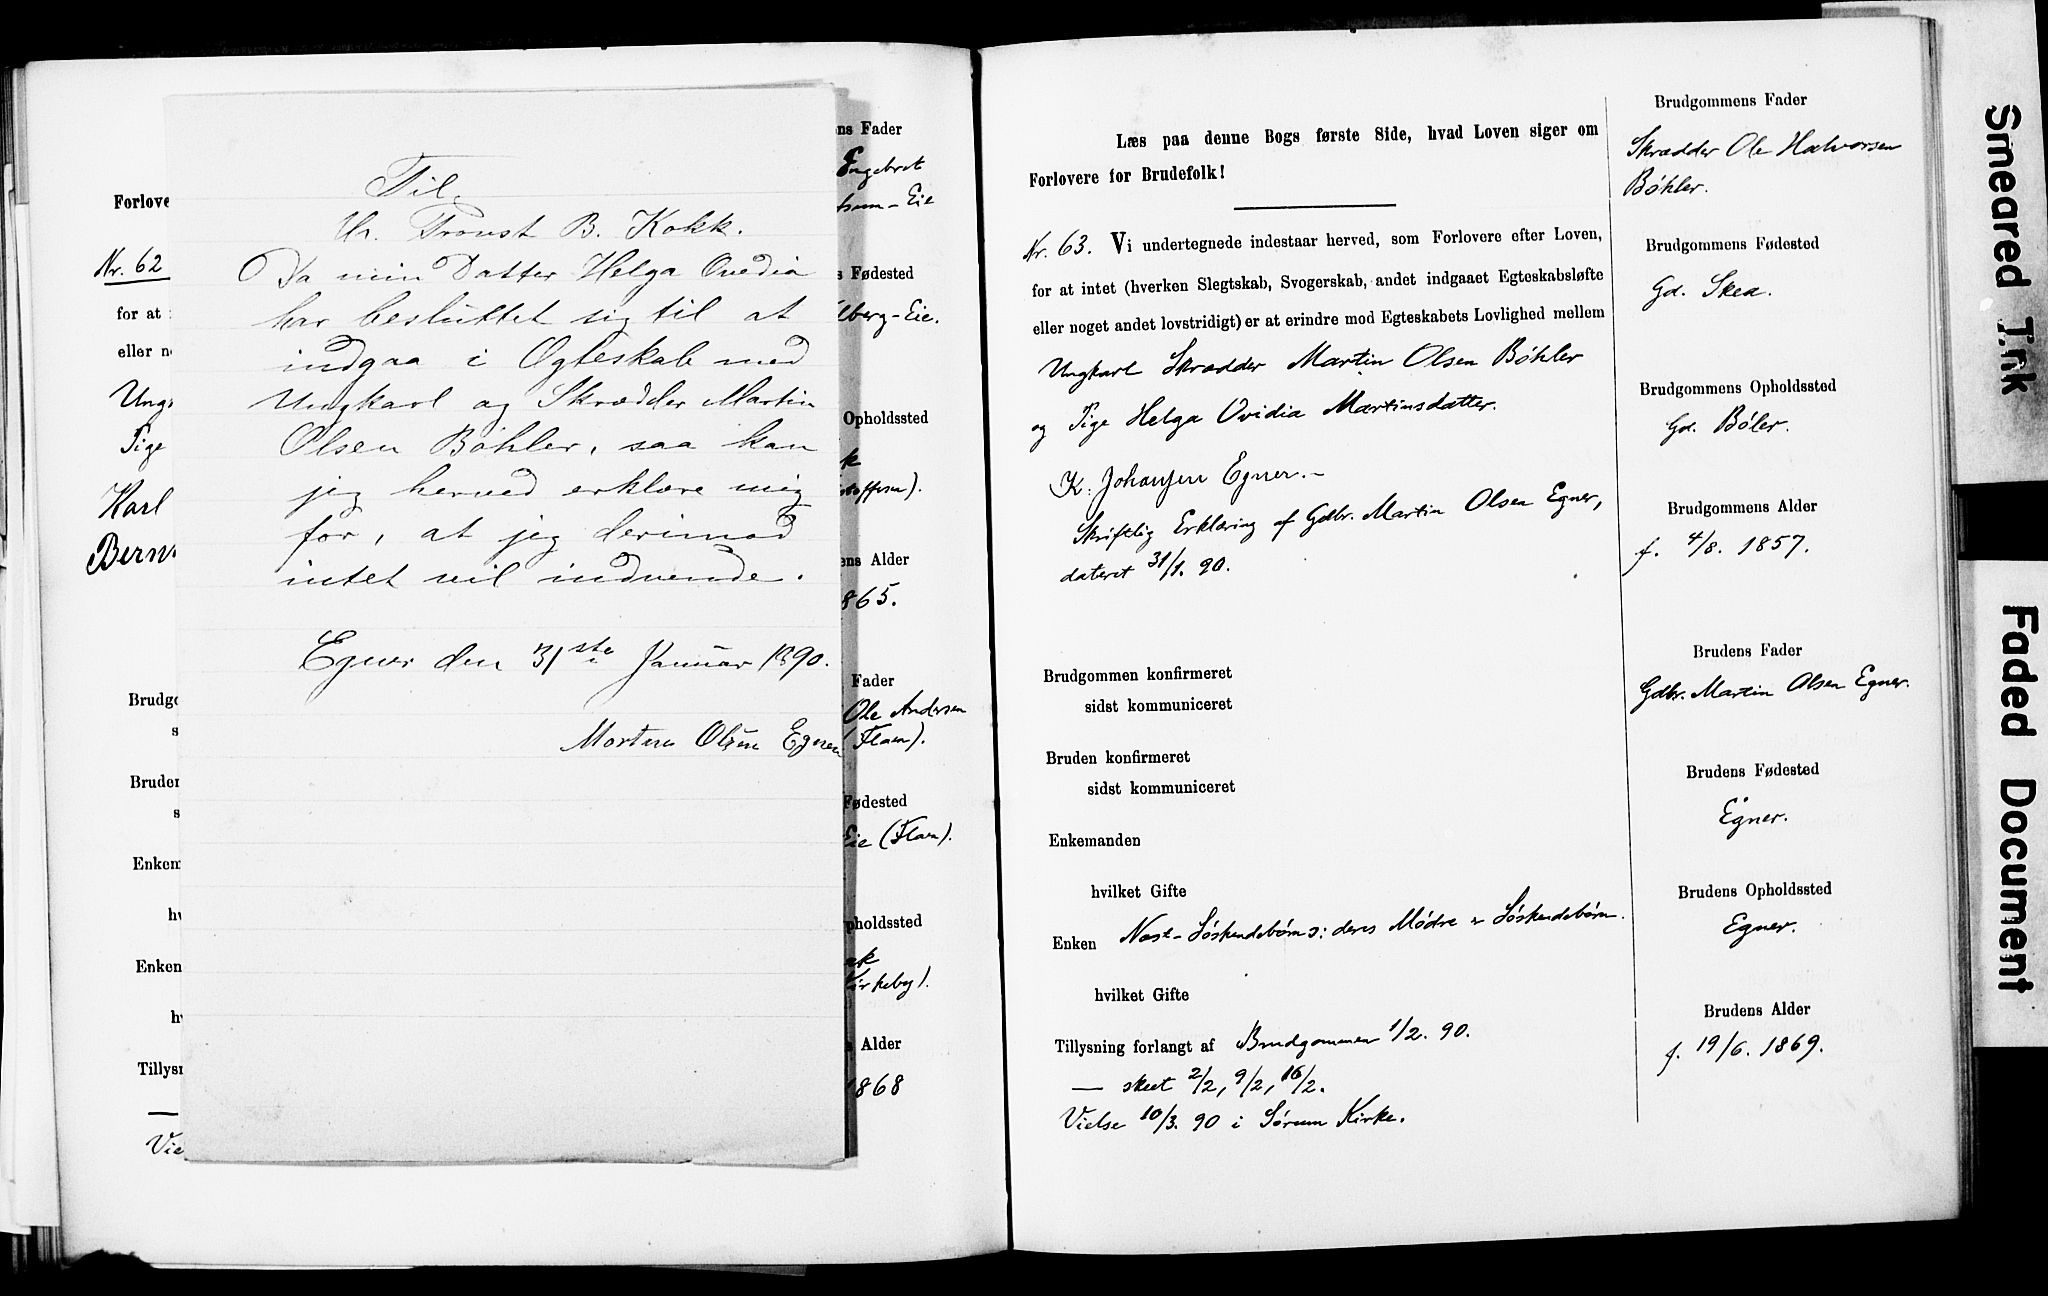 Forlove
Nr. 62
for at
eller n
Ung
Pige
Karl
Bern
Brudgo
s
Bruden
s
Enkem
hv
Enken
hv
Tillysn
—
Vie
Til
Hr. Provst B. Kokk.
Da min Datter Helga Ovedia
har besluttet sig til at
indgaa i Ægteskab med
Ungkarl og Skrædder Martin
Olsen Bøhler, saa kan
jeg herved erklære mig
for, at jeg derimod
intet vil indvende.
Egner den 31ste Januar 1890.
Martin Olsen Egner
ns Fader
Engebret
Eie
s Fødested
lberg-Eie.
Opholdssted
k
offersen).
ens Alder
865.
Fader
Ole Andersen
(Flaen).
Fødested
Eie (Flaen).
pholdssted
ak
Kirkeby).
s Alder
1868
Læs paa denne Bogs første Side, hvad Loven siger om
Forlovere for Brudefolk!
Nr. 63. Vi undertegnede indestaar herved, som Forlovere efter Loven,
for at intet (hverken Slegtskab, Svogerskab, andet indgaaet Egteskabsløfte
eller noget andet lovstridigt) er at erindre mod Egteskabets Lovlighed mellem
Ungkarl Skrædder Martin Olsen Bøhler
og Pige Helga Ovidia Martinsdatter.
K. Johansen Egner.-
Skriftlig Erklæring af Gdbr. Martin Olsen Egner,
dateret 31/1. 90.
Brudgommen konfirmeret
sidst kommuniceret
Bruden konfirmeret
sidst kommuniceret
Enkemanden
hvilket Gifte
Enken Næst-Søskendebørn ɔ: deres Mødre er Søskendebørn.
hvilket Gifte
Tillysning forlangt af Brudgommen 1/2. 90.
— skeet 2/2, 9/2, 16/2.
Vielse 10/3. 90 i Sørum Kirke.
Brudgommens Fader
Skrædder Ole Halvorsen
Bøhler.
Brudgommens Fødested
Gd. Skea.
Brudgommens Opholdssted
Gd. Bøler.
Brudgommens Alder
f. 4/8. 1857.
Brudens Fader
Gdbr. Martin Olsen Egner.
Brudens Fødested
Egner.
Brudens Opholdssted
Egner.
Brudens Alder
f. 19/6. 1869.
Smeared Ink
Faded Document